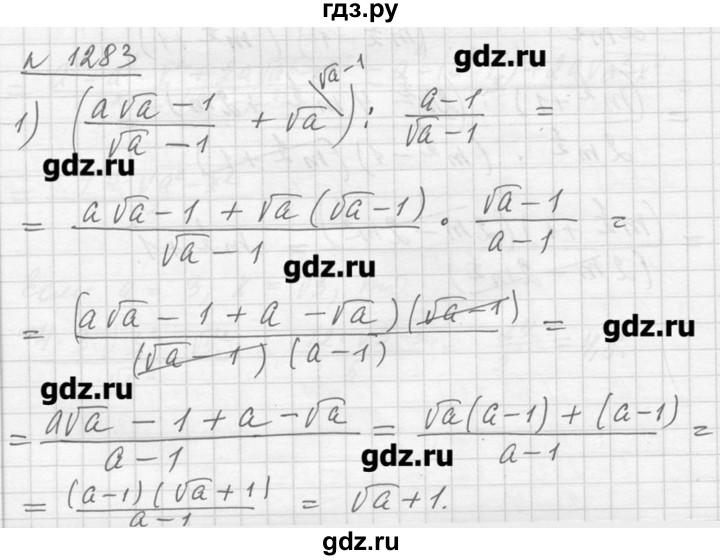 гдз.ру
№ 1283
gdz.ru
√a - 1
1) ((a√a - 1)/(√a - 1) + √a) : (a - 1)/(√a - 1) =
gdz.ru
= (a√a - 1 + √a(√a - 1))/(√a - 1) · (√a - 1)/(a - 1) =
gdz.ru
= ((a√a - 1 + a - √a)(√a - 1))/((√a - 1)(a - 1)) =
gdz.ru
gdz.ru
= (a√a - 1 + a - √a)/(a - 1) = (√a(a - 1) + (a - 1))/(a - 1) =
gdz.ru
= ((a - 1)(√a + 1))/(a - 1) = √a + 1.
гдз.ру